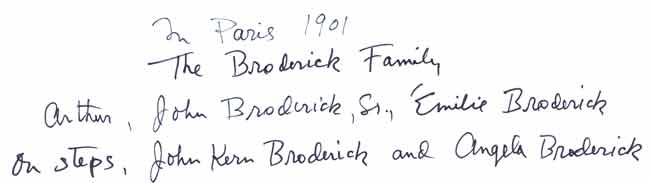 In Paris 1901
The Broderick Family
Arthur, John Broderick, Sr., Emilie Broderick
On steps, John Kern Broderick and Angela Broderick